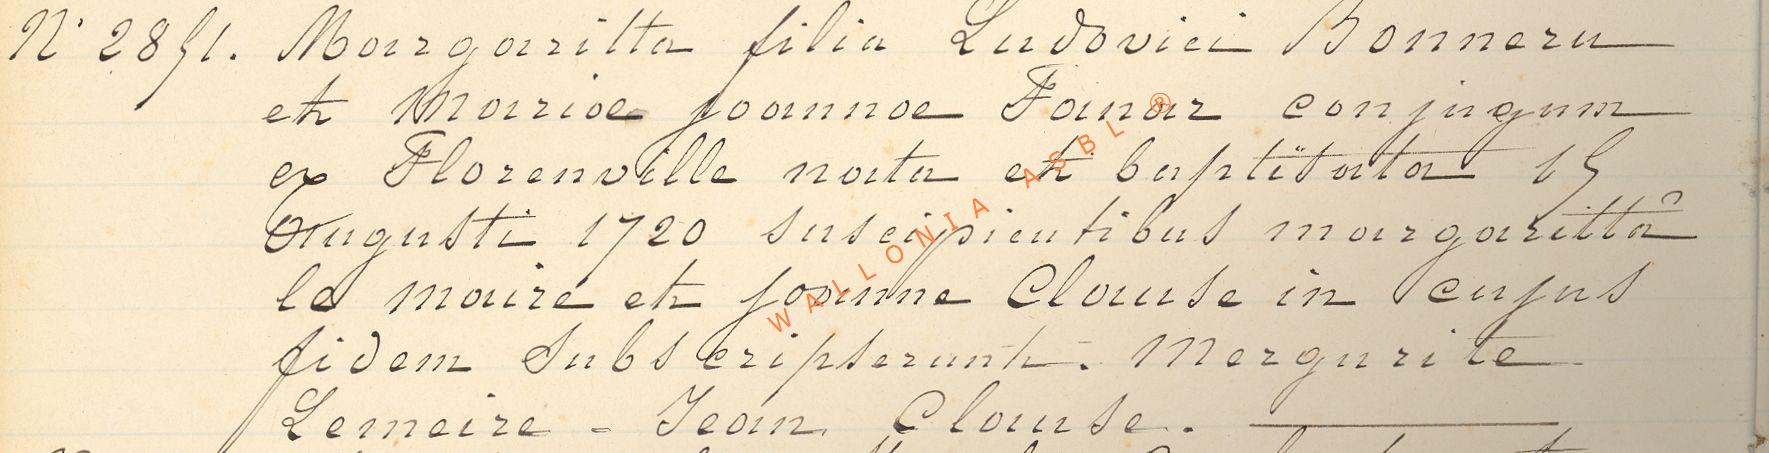 N° 2851. Margaritta filia Ludovici Bonneru
et Mariae joannae Fanar conjugum
ex Florenville nata et baptisata 15
Augusti 1720 suscipientibus margarittâ
le maire et joanne Clause in cujus
fidem subscripserunt. Mergurite
Lemeire - Jean Clause.
WALLONIA ASBL ®